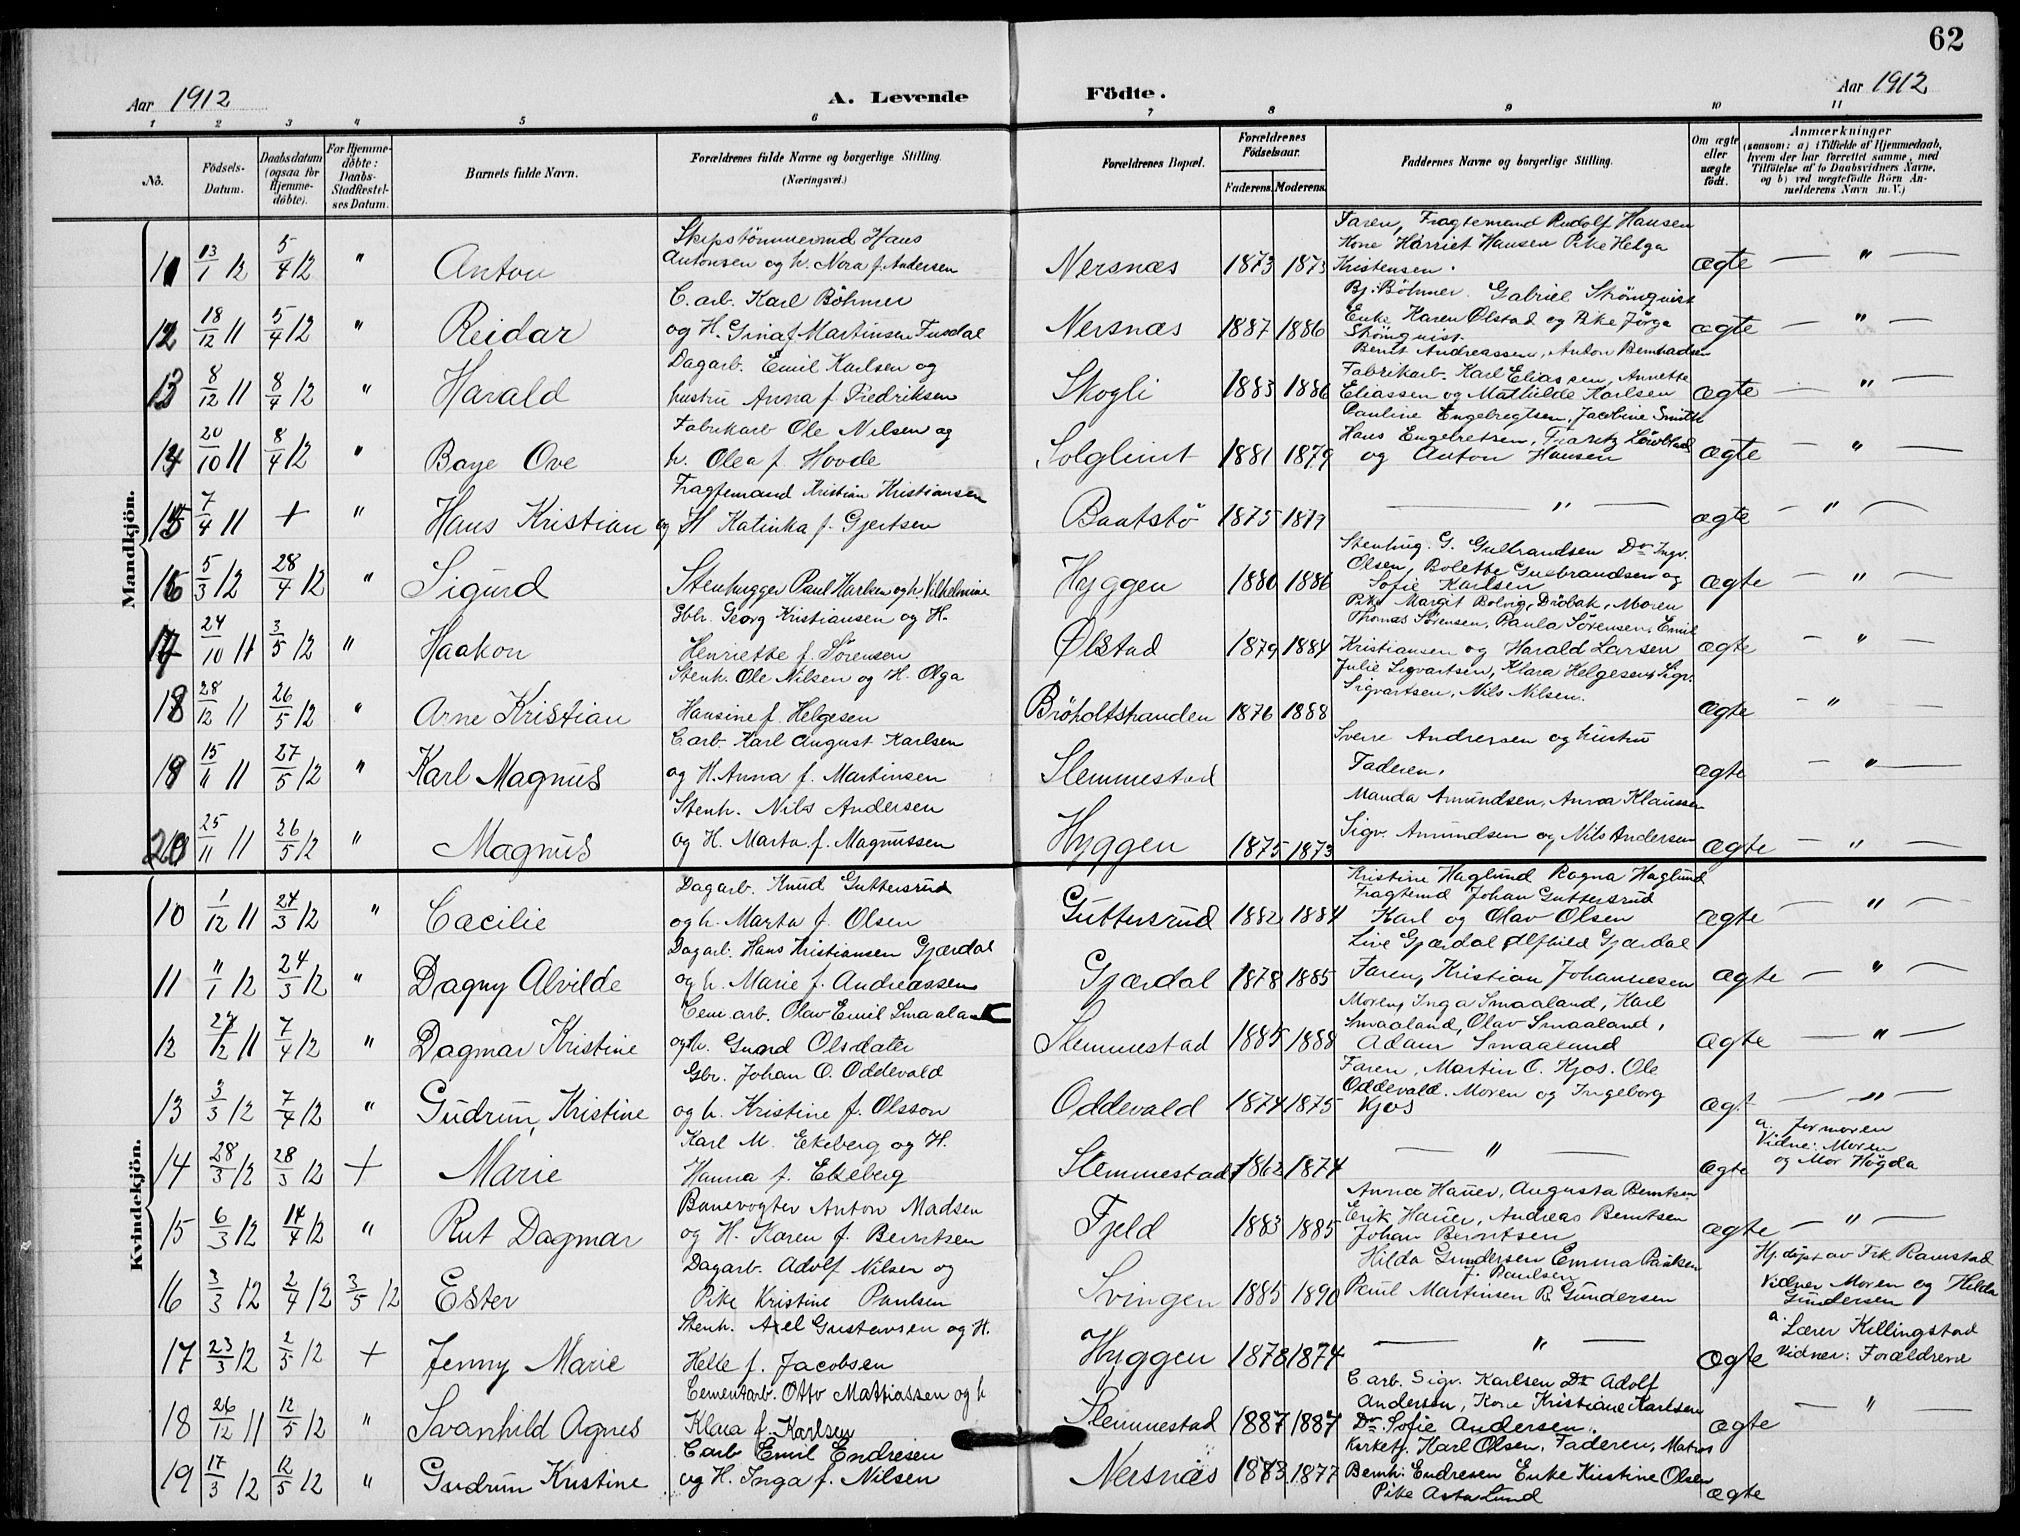 62
Aar 1912
A. Levende Födte.
Aar 1912
1 2 3 4 5 6 7 8 9 10 11
No.
Födsels-Datum.
Daabsdatum (ogsaa for Hjemme-döbte).
For Hjemme-döbte: Daabs-Stadfæstel-ses Datum.
Barnets fulde Navn.
Forældrenes fulde Navne og borgerlige Stilling. (Næringsvei.)
Forældrenes Bopæl.
Forældrenes Födselsaar.
Faderens. Moderens.
Faddernes Navne og borgerlige Stilling.
Om ægte eller uægte födt.
Anmærkninger (saasom: a) i Tilfælde af Hjemmedaab, hvem der har forrettet samme, med Tilföielse af to Daabsvidners Navne, og b) ved uægtefödte Börn Anmelderens Navn m. V.)
Mandkjön.
11 13/1 12 5/4 12 " Anton Skipstömmermd Hans Antonsen og h. Nora f. Andersen Nersnæs 1873 1873 Faren, Fragtemand Rudolf Hansen Kone Harriet Hansen Pike Helga Kristensen. ægte — " —
12 18/12 11 5/4 12 " Reidar C. arb. Karl Böhmer og H. Gina f Martinsen Fusdal Nersnæs 1887 1886 Bj. Böhmer. Gabriel Strömquist Enke Karen Ølstad og Pike Jörga Strömquist. ægte — " —
13 8/12 11 8/4 12 " Harald Dagarb. Emil Karlsen og hustru Anna f. Fredriksen Skogli 1883 1886 Bernt Andreassen, Anton Bernhadsen Fabrikarb. Karl Eliassen, Annette Eliassen og Mathilde Karlsen ægte — " —
14 20/10 11 8/4 12 " Baye Ove Fabrikarb Ole Nilsen og h. Olea f. Hovde Solglimt 1881 1879 Pauline Engebregtsen, Jacobine Smith Hans Engebretsen, og Anton Hansen ægte — " —
15 7/4 11 + " Hans Kristian Fragtemand Kristian Kristiansen og H Katinka f. Gjertsen Baatstö 1875 1877 — " — ægte — " —
16 5/3 12 28/4 12 " Sigurd Stenhugger Paul Karlsen og h. Vilhelmine Hyggen 1880 1886 Stenhug. G. Gulbrandsen Do Ingv. Olsen, Bolette Gulbrandsen og Sofie Karlsen ægte — " —
17 24/10 11 3/5 12 " Haakon Gbr. Georg Kristiansen og H. Henriette f. Sörensen Ølstad 1879 1884 Pike Margit Bolvig, Dröbak, Moren Thomas Sörensen, Paula Sörensen, Emil Kristiansen og Harald Larsen ægte — " —
18 28/12 11 26/5 12 " Arne Kristian Stenh. Ole Nilsen og H. Olga Hansine f. Helgesen Bröholtstranden 1876 1888 Julie Sigvartsen, Klara Helgesen, Sigv. Sigvartsen, Nils Nilsen. ægte — " —
19 15/11 11 27/5 12 " Karl Magnus C. arb. Karl August Karlsen og H. Anna f. Martinsen Slemmestad Sverre Andersen og hustru Faderen. ægte — " —
20 25/11 11 26/5 12 " Magnus Stenh. Nils Andersen og H. Marta f. Magnussen Hyggen 1875 1873 Manda Amundsen, Anna Klaussen Sigv. Amundsen og Nils Andersen ægte — " —
Kvindekjön.
10 1/12 11 24/3 12 " Cacilie Dagarb. Knud Guttersrud og h. Marta f. Olsen Guttersrud 1882 1884 Kristine Haglund Ragna Haglund Fragtemd Johan Guttersrud Karl og Olav Olsen ægte — " —
11 11/1 12 24/3 12 " Dagny Alvilde Dagarb. Hans Kristiansen Gjærdal og h. Marie f. Andreassen Gjærdal 1878 1885 Live Gjærdal, Alfhild Gjærdal Faren, Kristian Johannesen ægte — " —
12 /12 11 7/4 12 " Dagmar Kristine Cem. arb. Olav Emil Smaaland og h. Gunda Olsdatter Slemmestad 1885 1888 Moren, Inga Smaaland, Karl Smaaland, Olav Smaaland, Adam Smaaland ægte — " —
13 3/3 12 7/4 12 " Gudrun Kristine Gbr. Johan O. Oddevald og h. Kristine f. Olsson Oddevald 1874 1875 Faren, Martin C. Kjos. Ole Oddevald. Moren og Ingeborg Kjos ægt — " —
14 28/3 12 28/3 12 + Marie Karl M. Ekeberg og H. Hanna f. Ekeberg Slemmestad 1862 1874 — " — ægte a. Jormoren Vidne: Moren og Mor Högda
15 6/3 12 14/4 12 " Rut Dagmar Banevogter Anton Madsen og H. Karen f. Berntsen Fjeld 1883 1885 Anna Hauer, Augusta Berntsen Erik Hauer, Andreas Berntsen Johan Berntsen ægte — " —
16 3/3 12 2/4 12 3/5 12 Ester Dagarb. Adolf Nilsen og Pike Kristine Paulsen Svingen 1885 1890 Hilda Gundersen Emma Paulsen J. Paulsen Paul Martinsen R. Gundersen Hj. döpt av Frk Ramstad Vidner Moren og Hilda Gundersen
17 23/3 12 2/5 12 + Jenny Marie Stenh. Axel Gustavsen og H. Helle f. Jacobsen Hyggen 1878 1874 — " — ægte a. Lærer Killingstad Vidner: Forældrene
18 26/12 11 12/5 12 " Svanhild Agnes Cementarb. Otto Mattiassen og h Klara f. Karlsen Slemmestad 1887 1887 C. arb. Sigv. Karlsen Do Adolf Andersen, Kone Kristiane Karlsen Do Sofie Andersen. ægte — " —
19 17/3 12 12/5 12 " Gudrun Kristine C arb Emil Endresen og H. Inga f. Nilsen Nersnæs 1873 1877 Kirketj. Karl Olsen, Faderen, Matros Bernh. Endresen Enke Kristine Olsen Pike Asta Lund ægte